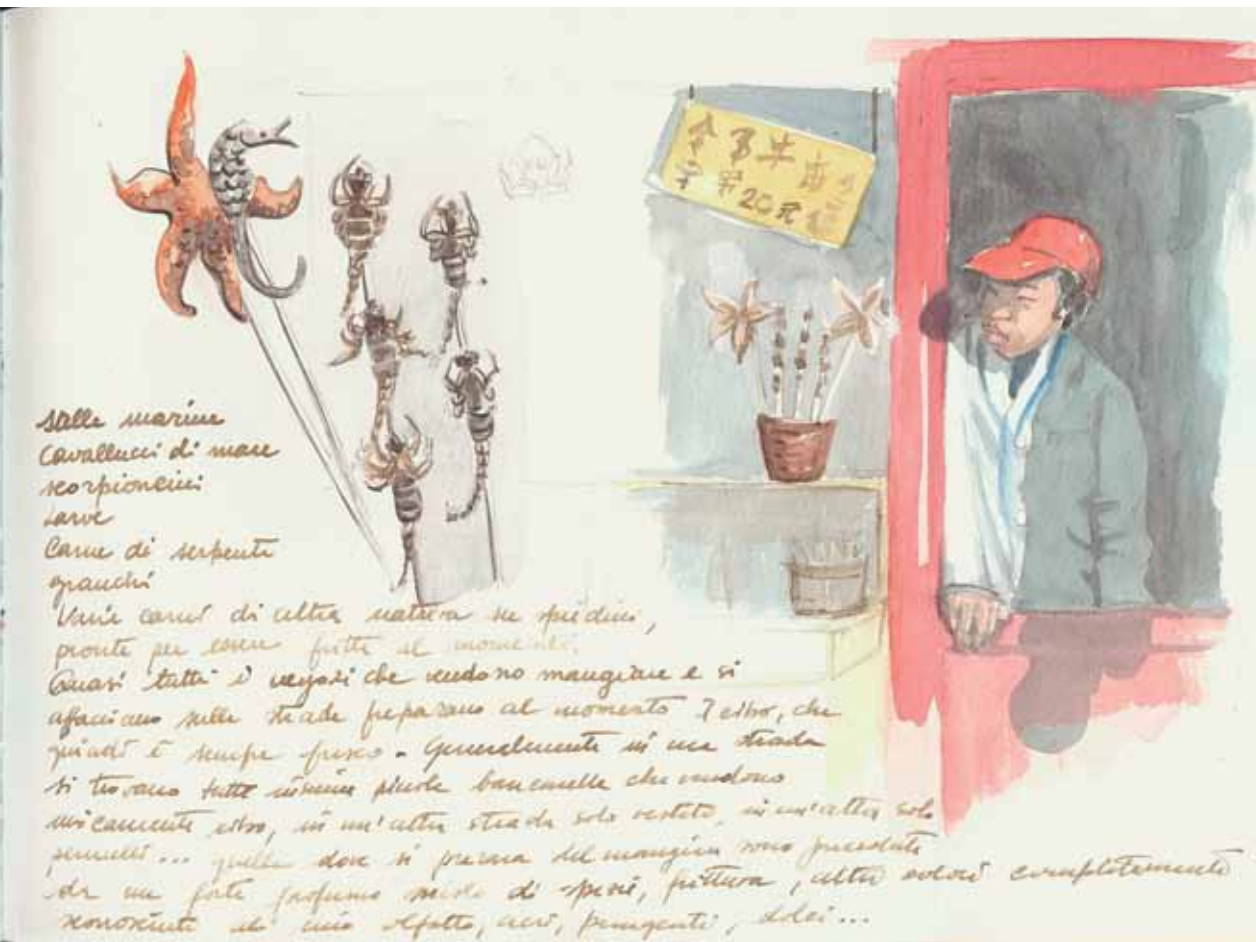 20元
stelle marine
cavallucci di mare
scorpioncini
larve
carne di serpente
granchi
Varie carni di altra natura su spiedini,
pronte per essere fritte al momento.
Quasi tutti i negozi che vendono mangiare e si
affacciano sulle strade preparano al momento il cibo, che
quindi è sempre fresco. Generalmente in una strada
si trovano tutte insieme piccole bancarelle che vendono
unicamente cibo, in un'altra strada solo vestiti, in un'altra solo
pennelli... quelle dove si prepara del mangiare sono precedute
da un forte profumo misto di spezie, frittura, altri odori completamente
sconosciuti al mio olfatto, acri, pungenti, dolci...